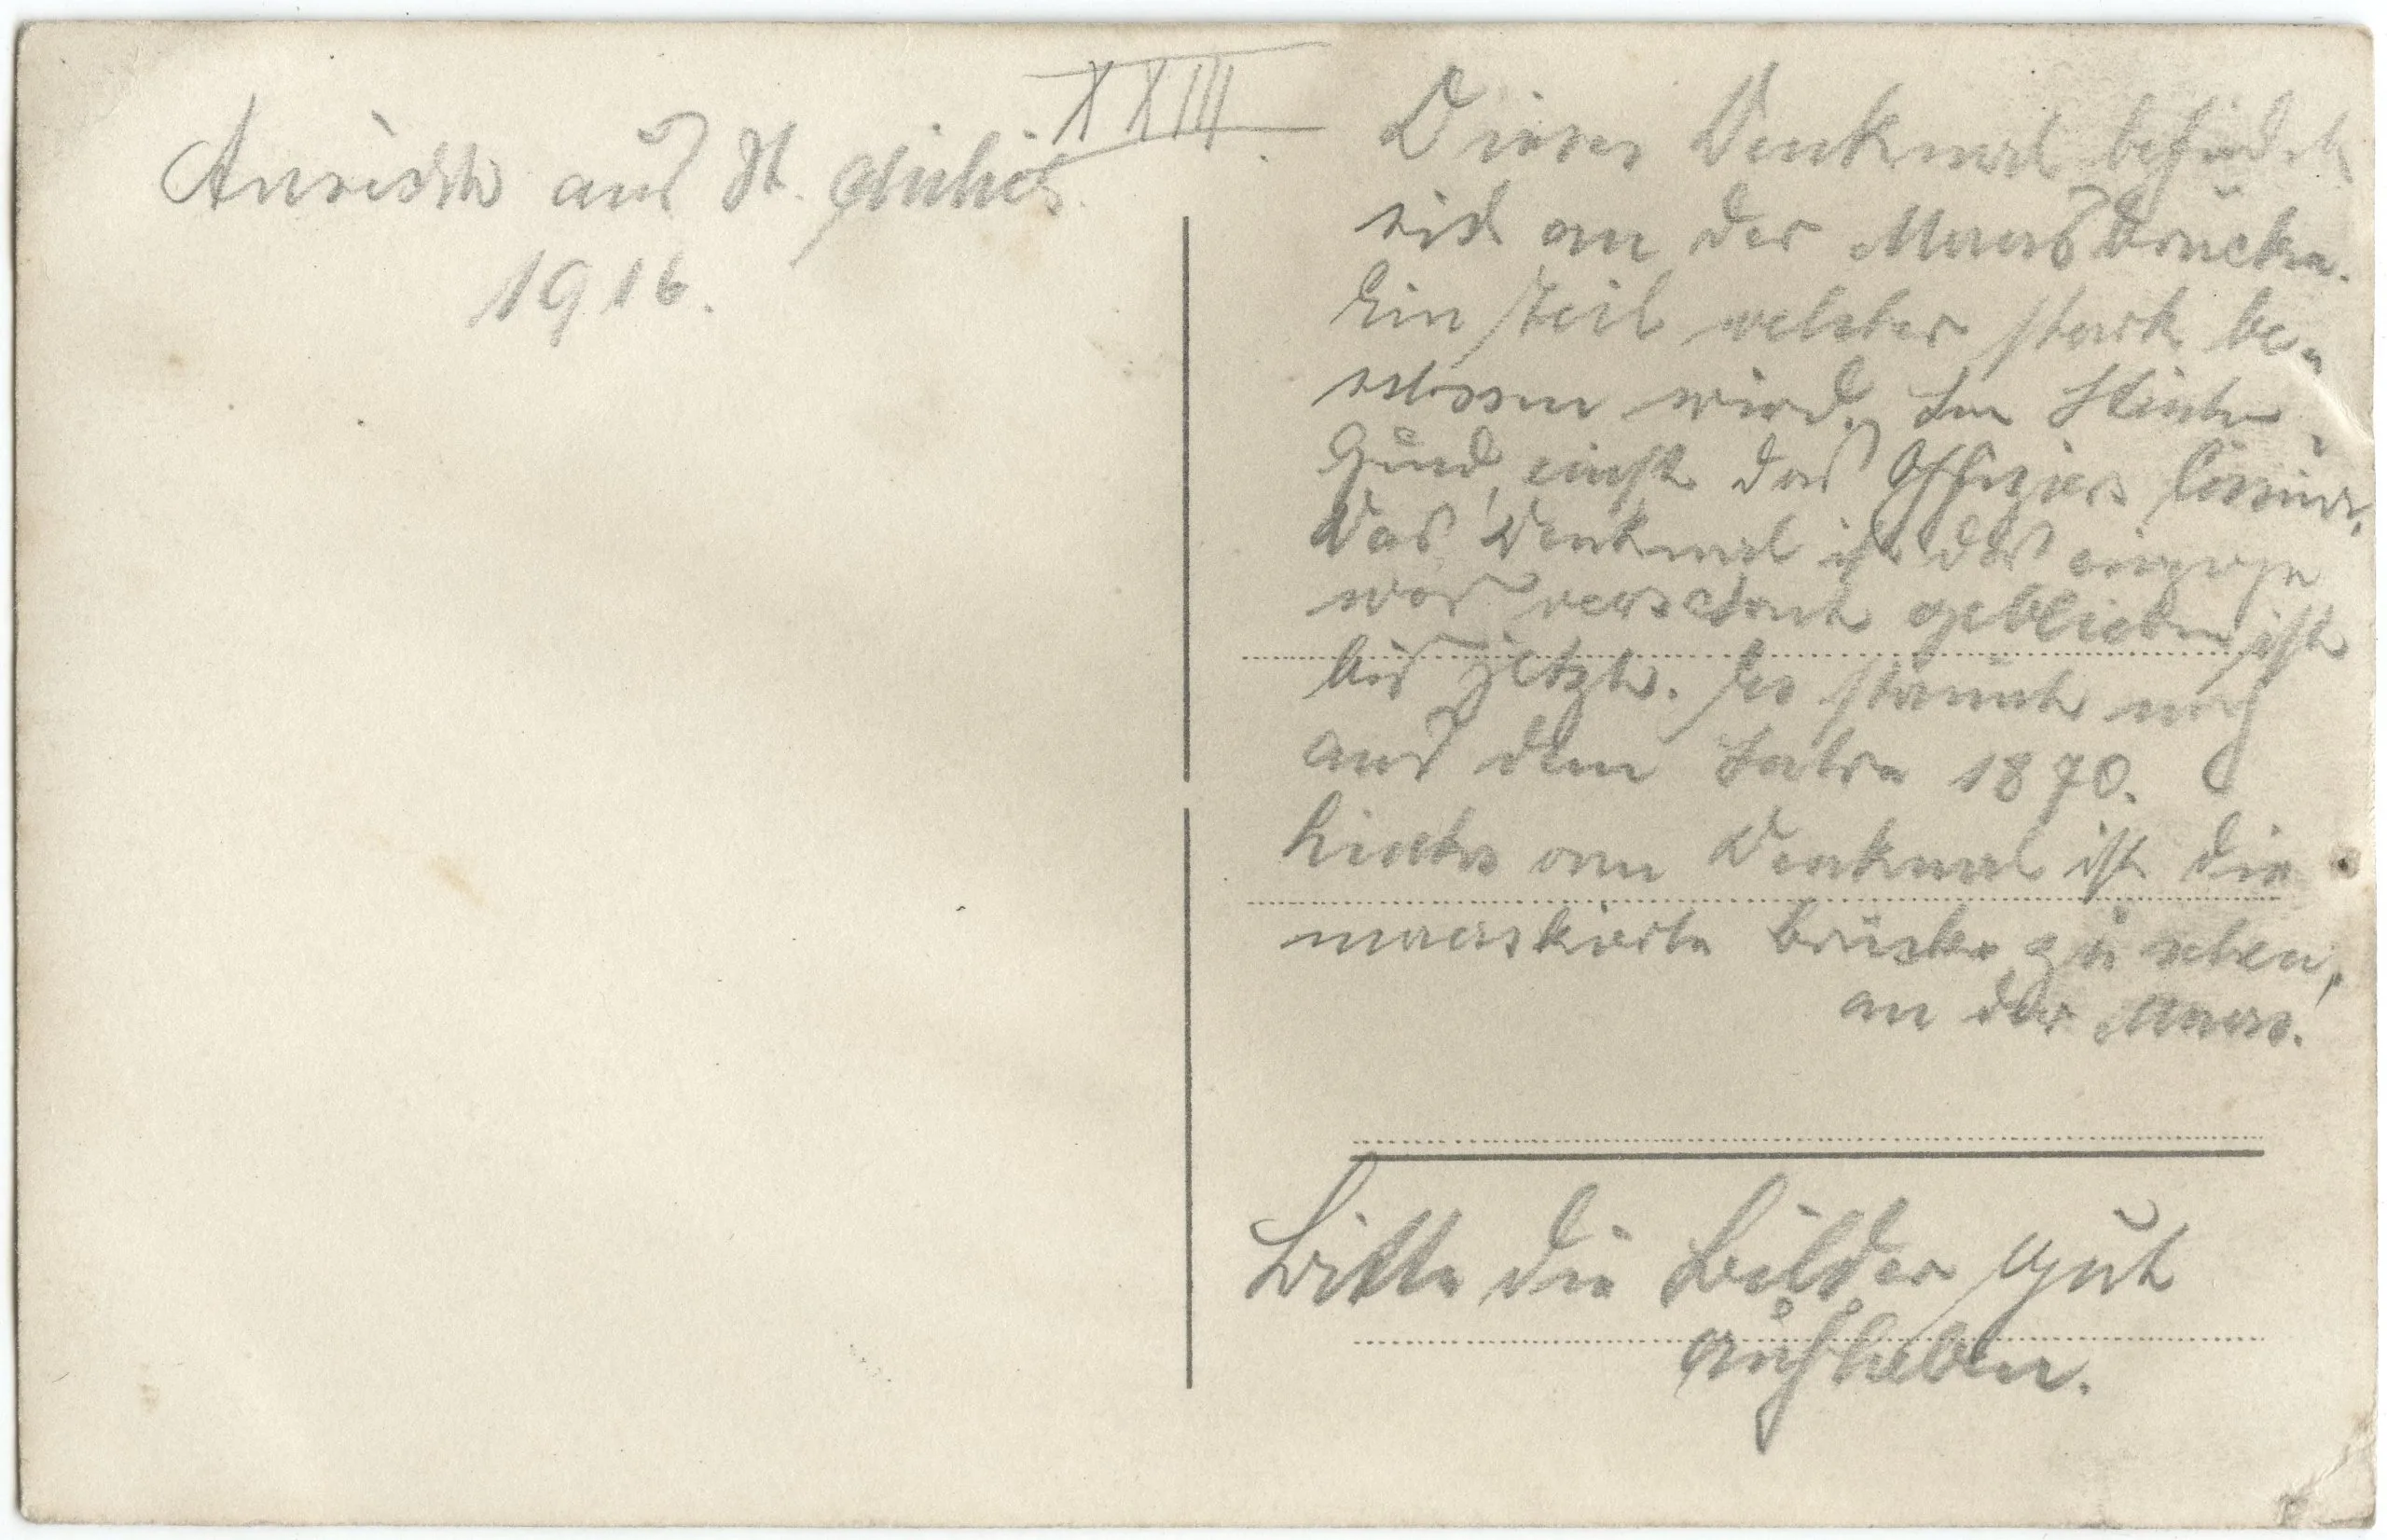 XXIII.
Ansicht aus St. Mihiel
1916.
Dieses Denkmal befindet
sich an der Maasbrücke.
Ein Teil welcher stark be-
schossen wird. Im Hinter-
Grund, einst das Offiziers Casino.
Das Denkmal ist das einzige
was verschont geblieben ist
bis jetzt. Es stammt noch
aus dem Jahre 1870.
Links vom Denkmal ist die
maskierte Brücke zu sehen,
an der Maas.
Bitte die Bilder gut
aufheben.